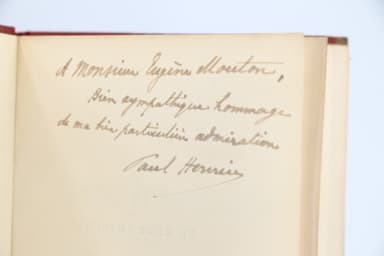 A Monsieur Eugène Mouton,
Bien sympathique hommage
de ma bien particulière admiration
Paul